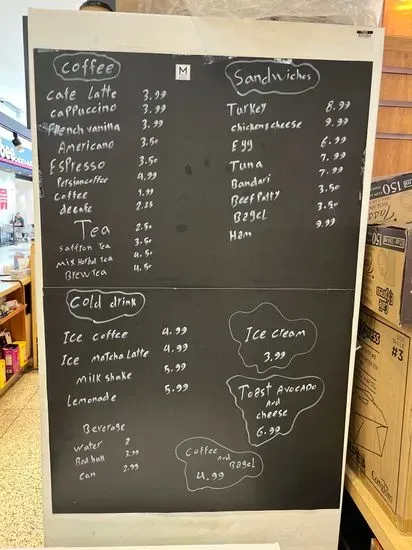 Coffee
Cafe Latte 3.99
Cappuccino 3.99
French vanilla 3.99
Americano 3.50
Espresso 3.50
Persian coffee 4.99
Coffee 1.99
decafe 2.25
Tea 2.50
Saffron Tea 3.50
Mix Herbal Tea 4.50
Brew Tea 4.50
M
Sandwiches
Turkey 8.99
chicken & cheese 9.99
Egg 6.99
Tuna 7.99
Bandari 7.99
Beef Patty 3.50
Bagel 3.50
Ham 9.99
Cold drink
Ice coffee 4.99
Ice Matcha Latte 4.99
milk shake 5.99
Lemonade 5.99
Beverage
Water 2
Red bull 3.99
Can 2.99
Ice cream
3.99
Toast Avocado
And
cheese
6.99
Coffee
And
Bagel
4.99
150
150
#3